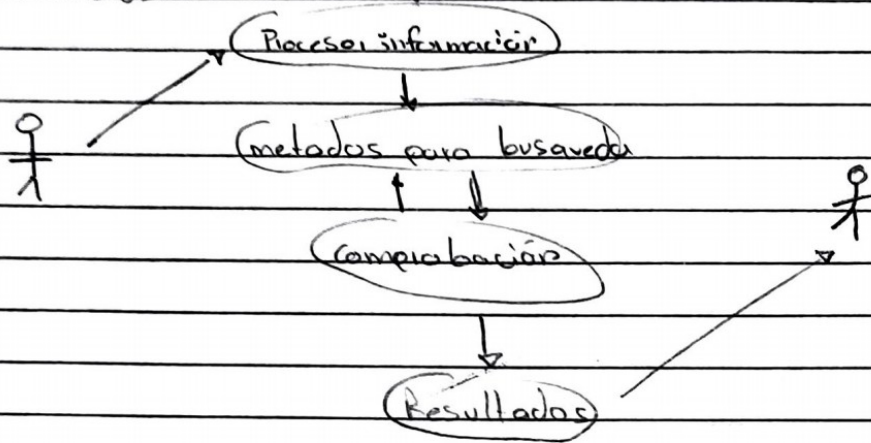 Procesos información
metodos para busqueda
Comprobación
Resultados